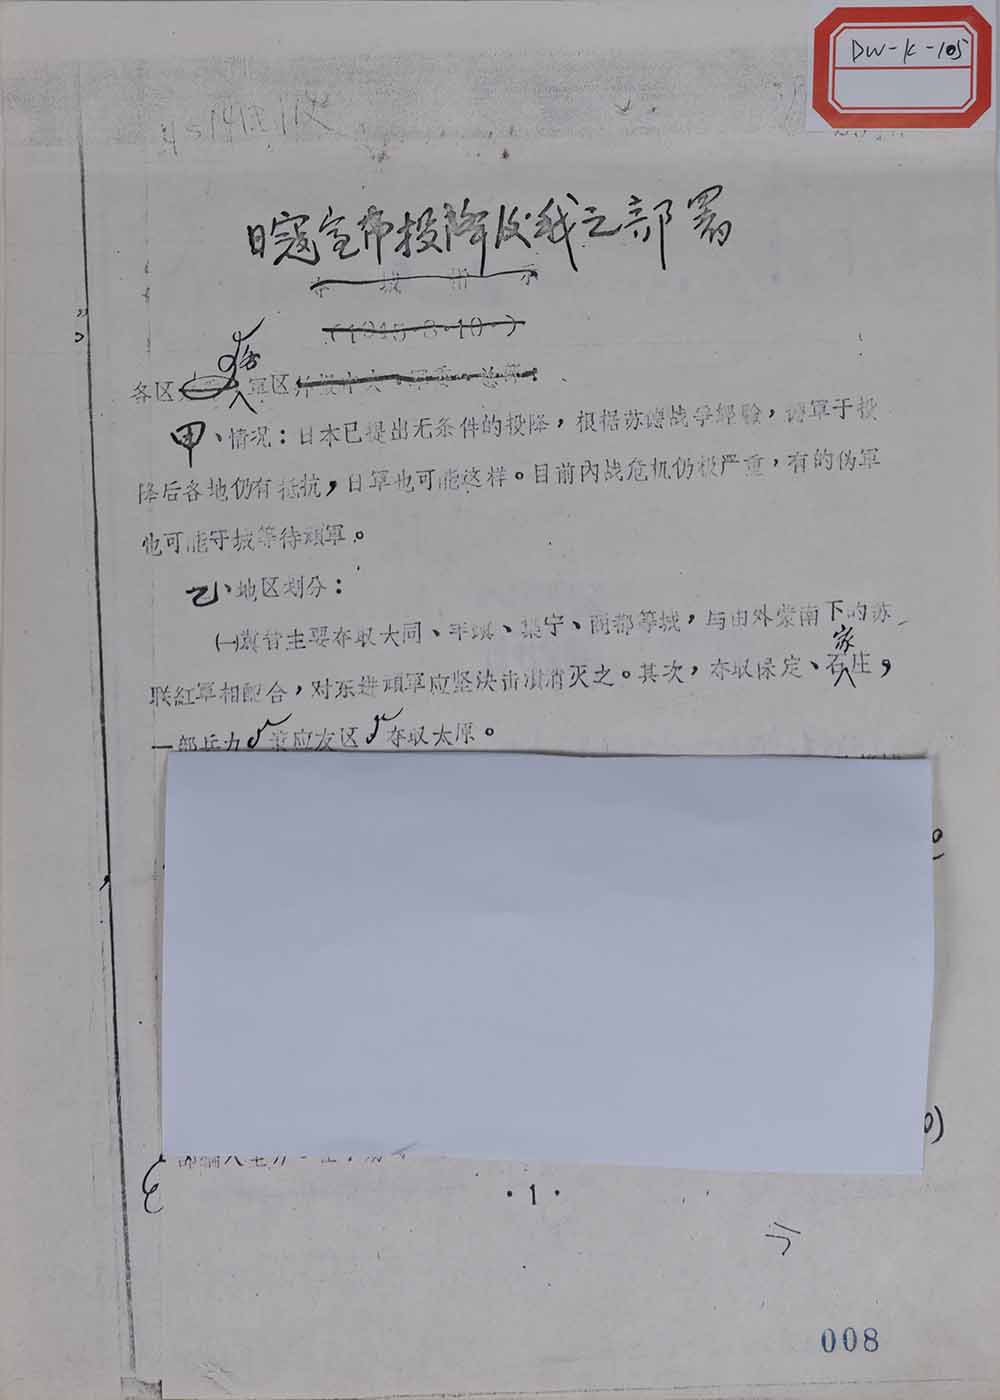 DW-K-105
日寇宣布投降后我之部署
(1945·8·10·)
各区 军区
甲、情况：日本已提出无条件的投降，根据苏德战争经验，德军于投
降后各地仍有抵抗，日军也可能这样。目前內战危机仍极严重，有的伪军
也可能守城等待頑軍。
乙、地区划分：
㈠冀晋主要夺取大同、丰镇、集宁、商都等城，与由外蒙南下的苏
联紅軍相配合，对东进頑軍应坚决击潰消灭之。其次，夺取保定、石家庄，
一部兵力 策应友区 夺取太原。
·1·
008